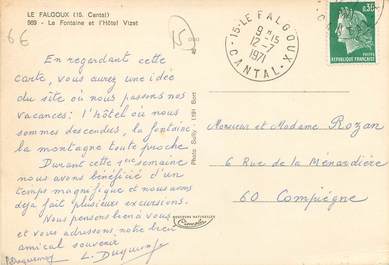 LE FALGOUX (15. Cantal)
989 - La Fontaine et l'Hôtel Vizet
6€
15
15-LE FALGOUX
9H15
12-7
1971
CANTAL
0,30
POSTES
REPUBLIQUE FRANÇAISE
En regardant cette
carte, vous aurez une idée
du site où nous passons nos
vacances: l'hôtel où nous
sommes descendus, la fontaine
la montagne toute proche
Durant cette 1ère semaine
nous avons bénéficié d'un
temps magnifique et nous avons
déjà fait plusieurs excursions.
Nous pensons bien à vous
et vous adressons notre bien
amical souvenir
Photo Sully 1191 Bort
COULEURS NATURELLES
Monsieur et Madame Rozan
6 Rue de la Ménardière
60 Compiègne